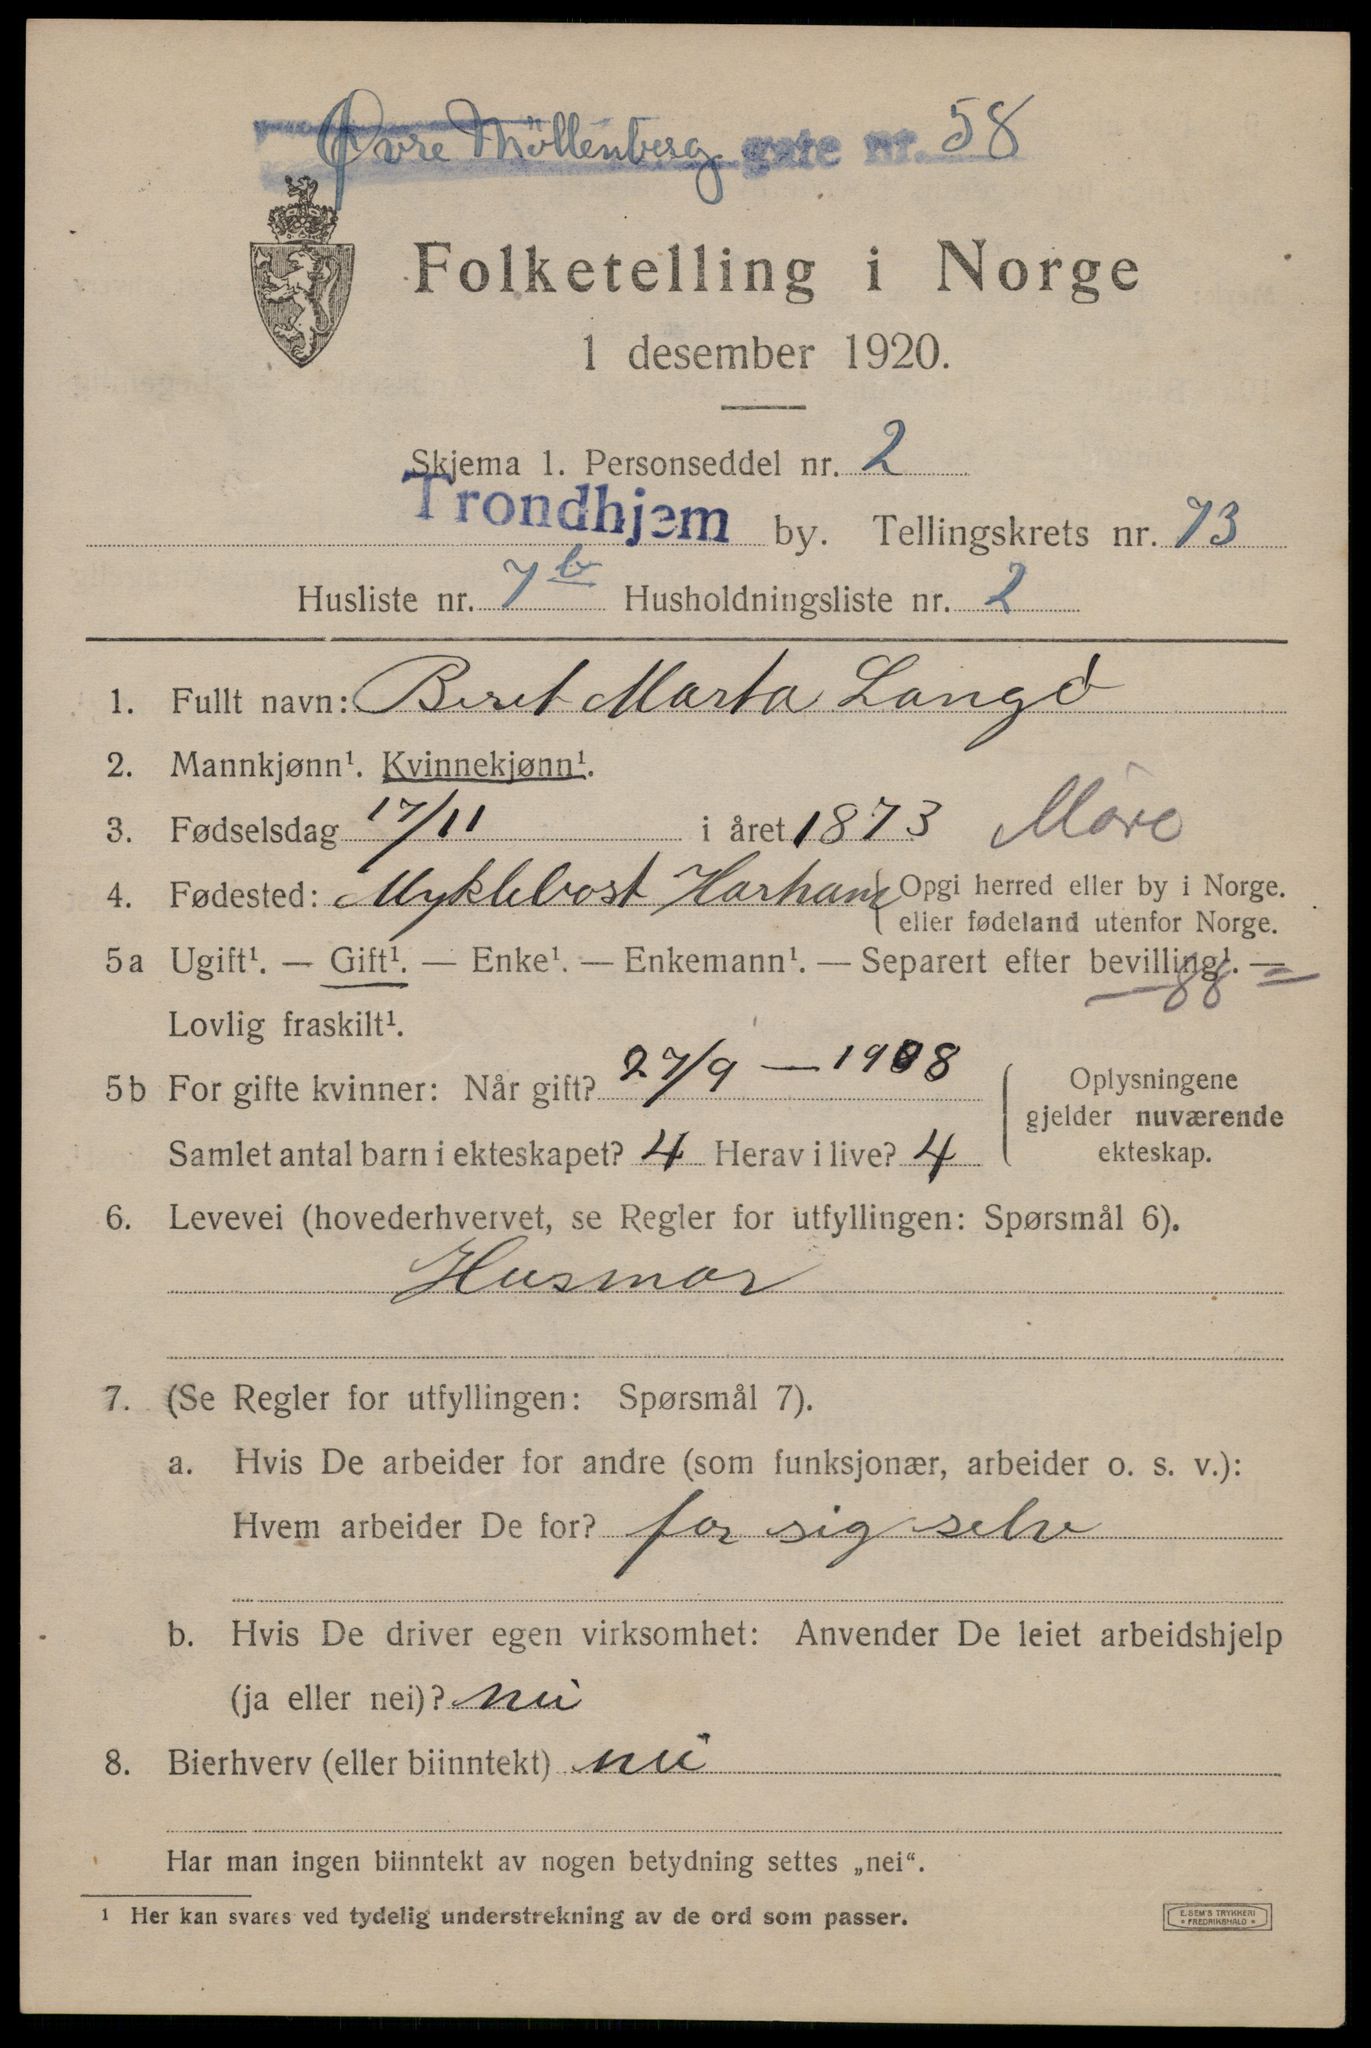 Øvre Möllenberg gate nr. 58
Folketelling i Norge
1 desember 1920.
Skjema 1. Personseddel nr. 2
Trondhjem by. Tellingskrets nr. 73
Husliste nr. 7b Husholdningsliste nr. 2
1. Fullt navn: Beret Marta Langö
2. Mannkjønn¹. Kvinnekjønn¹.
3. Fødselsdag 17/11 i året 1873 Möre
4. Fødested: Myklebost Harham { Opgi herred eller by i Norge.
eller fødeland utenfor Norge.
5a Ugift¹. — Gift¹. — Enke¹. — Enkemann¹. — Separert efter bevilling¹. —
88
Lovlig fraskilt¹.
5b For gifte kvinner: Når gift? 27/9 — 1908
Oplysningene
gjelder nuværende
ekteskap.
Samlet antal barn i ekteskapet? 4 Herav i live? 4
6. Levevei (hovederhvervet, se Regler for utfyllingen: Spørsmål 6).
Husmor
7. (Se Regler for utfyllingen: Spørsmål 7).
a. Hvis De arbeider for andre (som funksjonær, arbeider o. s. v.):
Hvem arbeider De for? for sig selv
b. Hvis De driver egen virksomhet: Anvender De leiet arbeidshjelp
(ja eller nei)? nei
8. Bierhverv (eller biinntekt) nei
Har man ingen biinntekt av nogen betydning settes „nei“.
¹ Her kan svares ved tydelig understrekning av de ord som passer.
E. SEM'S TRYKKERI
FREDRIKSHALD